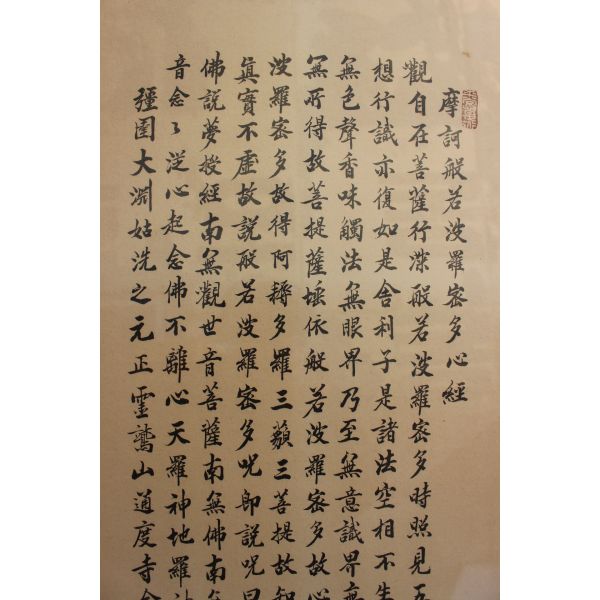 摩訶般若波羅密多心經
觀自在菩薩行深般若波羅密多時照見五
想行識亦復如是舍利子是諸法空相不生
無色聲香味觸法無眼界乃至無意識界無
無所得故菩提薩埵依般若波羅密多故心
波羅密多故得阿耨多羅三藐三菩提故知
真實不虛故說般若波羅密多呪即說呪曰
佛說夢授經南無觀世音菩薩南無佛南
音念々從心起念佛不離心天羅神地羅神
彊圉大淵姑洗之元正靈鷲山通度寺